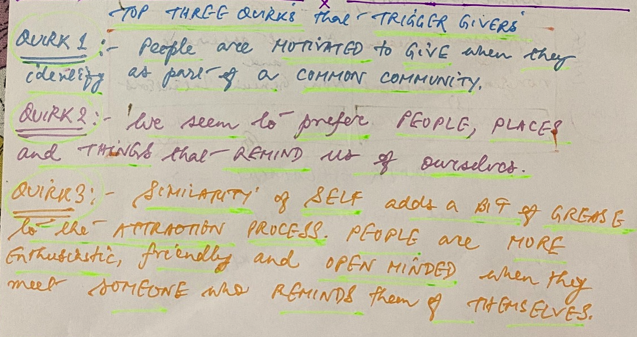 TOP THREE QUIRKS that TRIGGER GIVERS
QUIRK 1:- People are MOTIVATED to GIVE when they
identify as part of a COMMON COMMUNITY.
QUIRK 2:- We seem to prefer PEOPLE, PLACES
and THINGS that REMIND us of ourselves.
QUIRK 3:- SIMILARITY of SELF adds a BIT of GREASE
to the ATTRACTION PROCESS. PEOPLE are MORE
Enthusiastic, friendly and OPEN MINDED when they
meet SOMEONE who REMINDS them of THEMSELVES.